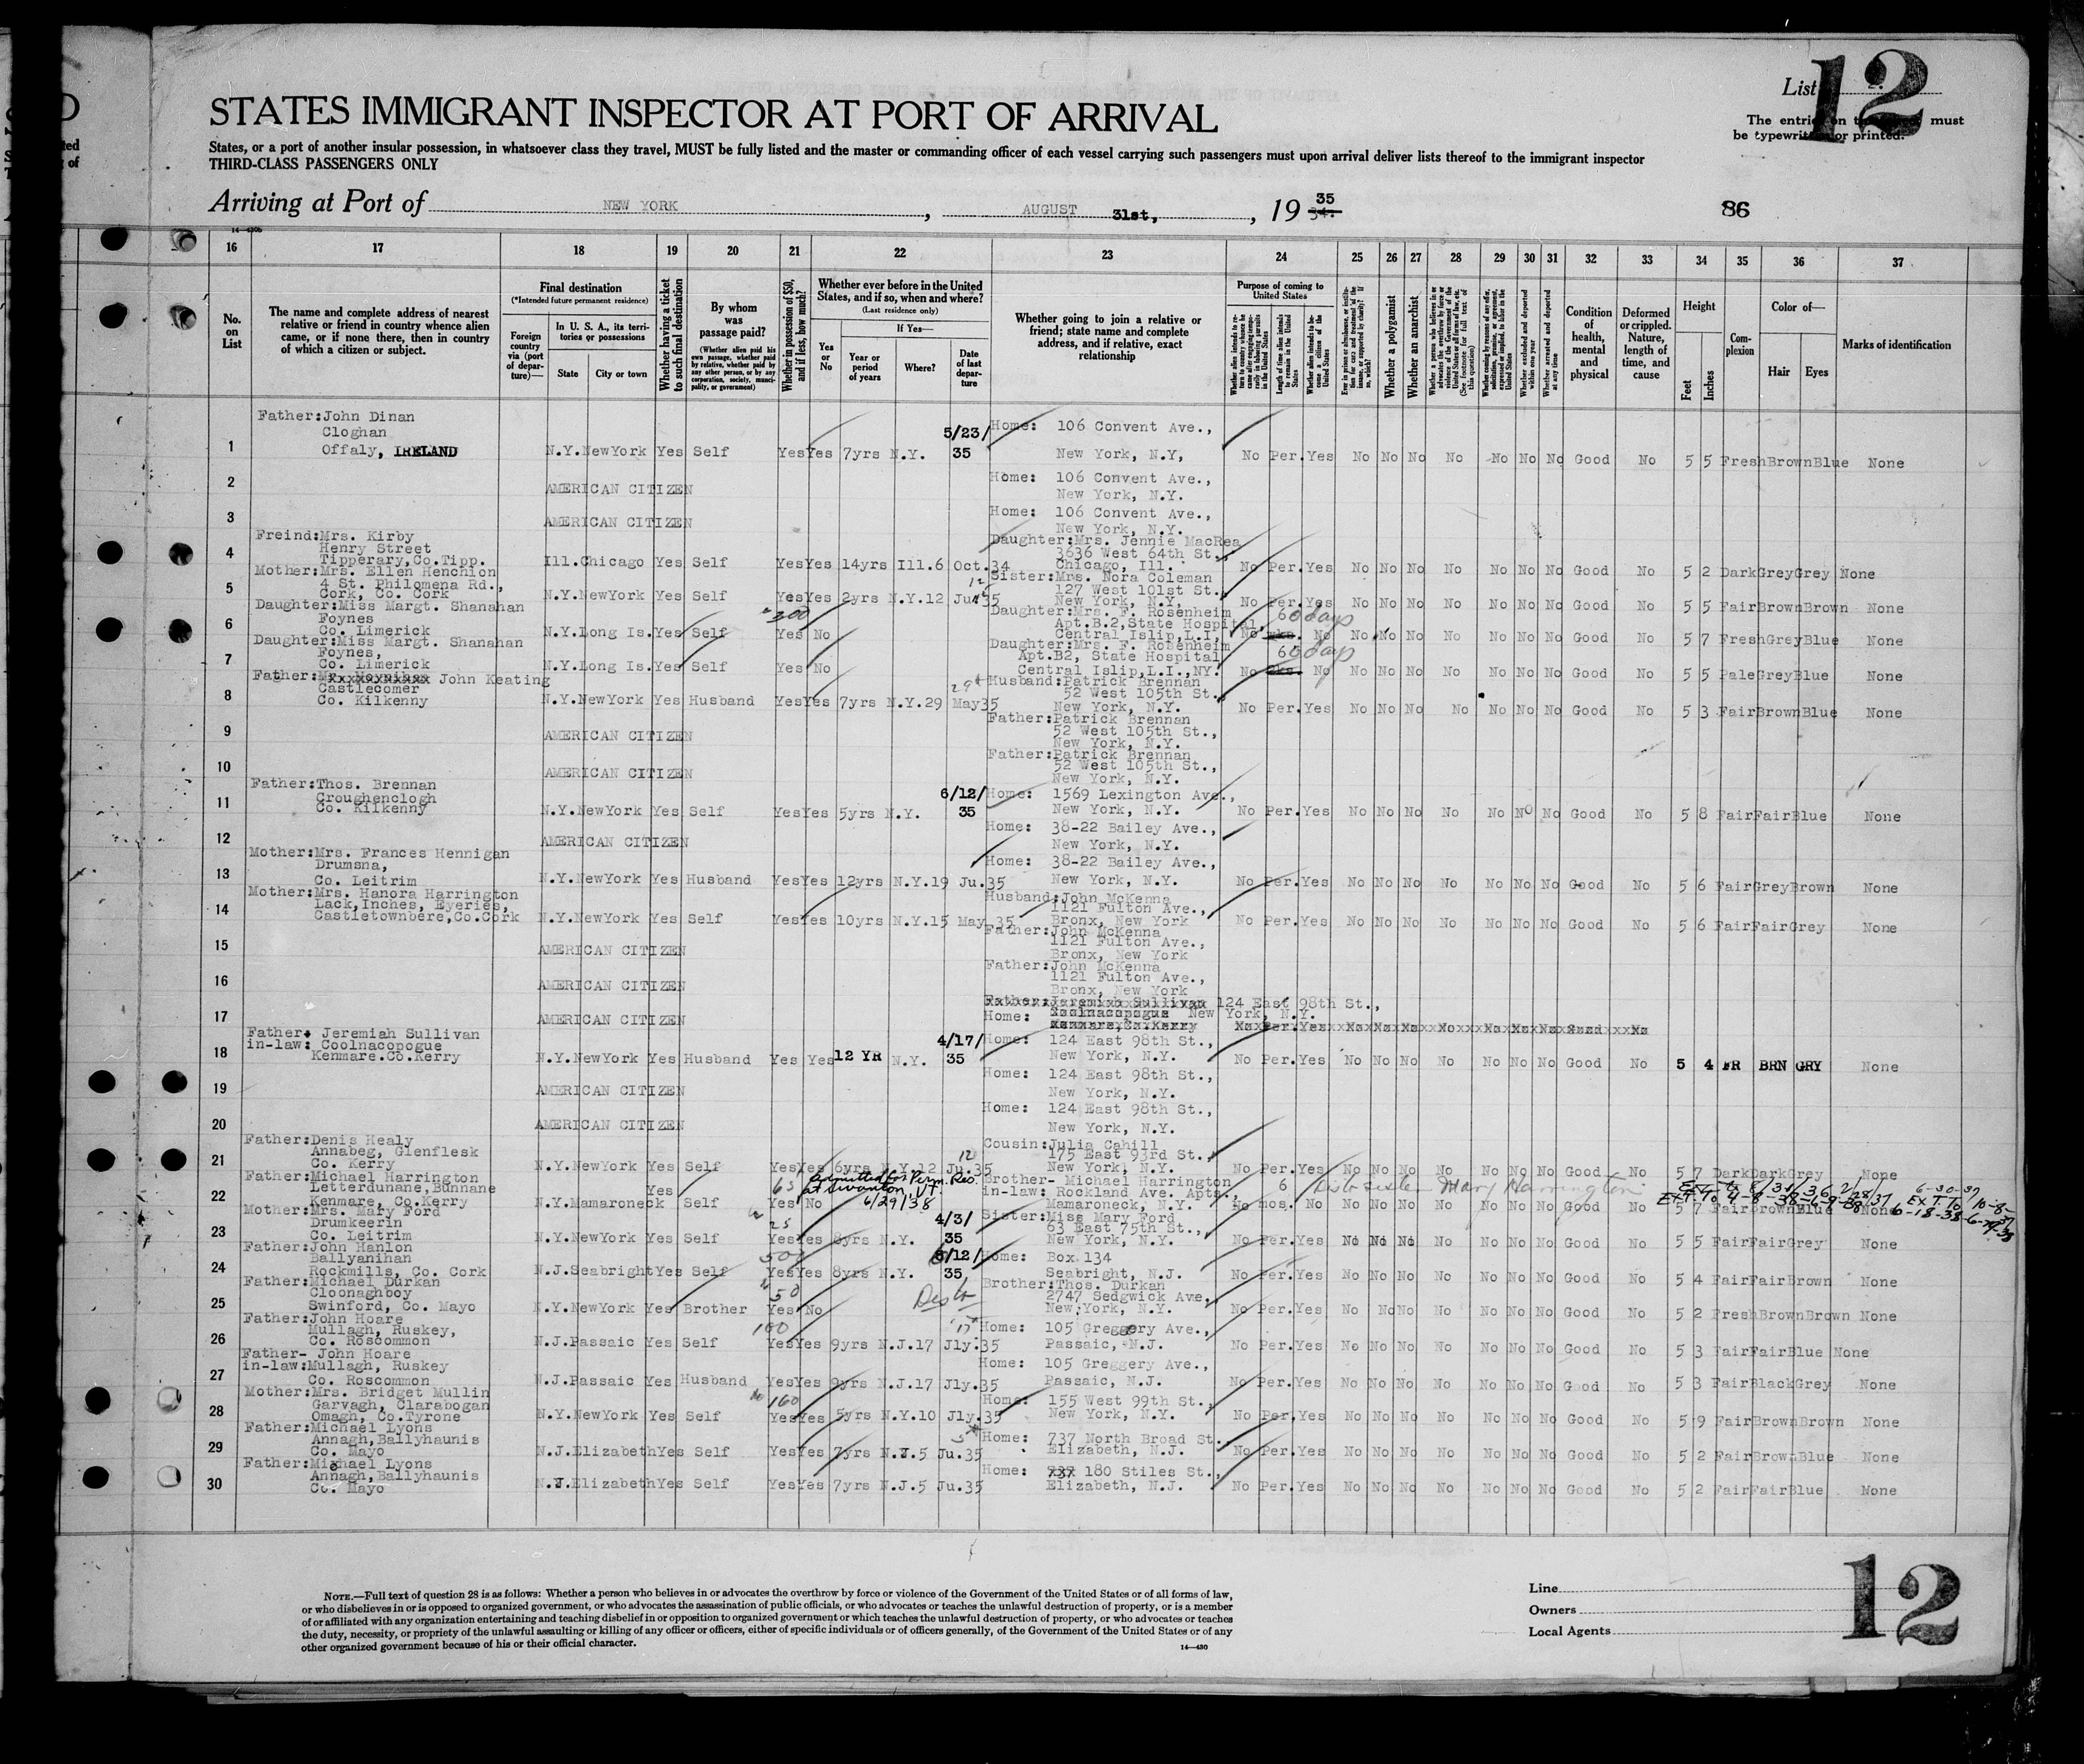 List 12
The entries on must
be typewritten or printed.
STATES IMMIGRANT INSPECTOR AT PORT OF ARRIVAL
States, or a port of another insular possession, in whatsoever class they travel, MUST be fully listed and the master or commanding officer of each vessel carrying such passengers must upon arrival deliver lists thereof to the immigrant inspector
THIRD-CLASS PASSENGERS ONLY
Arriving at Port of NEW YORK, AUGUST 31st, 19 35
86
16 17 18 19 20 21 22 23 24 25 26 27 28 29 30 31 32 33 34 35 36 37
No. on List
The name and complete address of nearest relative or friend in country whence alien came, or if none there, then in country of which a citizen or subject.
Final destination
(*Intended future permanent residence)
Foreign country via (port of departure)—
In U. S. A., its territories or possessions
State City or town
Whether having a ticket to such final destination
By whom was passage paid?
(Whether alien paid his own passage, whether paid by relative, whether paid by any other person, or by any corporation, society, municipality, or government)
Whether in possession of $50, and if less, how much?
Whether ever before in the United States, and if so, when and where?
(Last residence only)
Yes or No
If Yes—
Year or period of years Where? Date of last departure
Whether going to join a relative or friend; state name and complete address, and if relative, exact relationship
Purpose of coming to United States
Whether a polygamist
Whether an anarchist
Condition of health, mental and physical
Deformed or crippled. Nature, length of time, and cause
Height
Feet Inches
Complexion
Color of—
Hair Eyes
Marks of identification
1 Father:John Dinan Cloghan Offaly, IRELAND N.Y. NewYork Yes Self Yes Yes 7yrs N.Y. 5/23/35 Home: 106 Convent Ave., New York, N.Y, No Per. Yes No No No No No No No Good No 5 5 Fresh Brown Blue None
2 AMERICAN CITIZEN Home: 106 Convent Ave., New York, N.Y.
3 AMERICAN CITIZEN Home: 106 Convent Ave., New York, N.Y.
4 Freind:Mrs. Kirby Henry Street Tipperary,Co.Tipp. Ill. Chicago Yes Self Yes Yes 14yrs Ill. 6 Oct.34 Daughter:Mrs. Jennie MacRea 3636 West 64th St., Chicago, Ill. No Per. Yes No No No No No No No Good No 5 2 Dark Grey Grey None
5 Mother:Mrs. Ellen Henchion 4 St. Philomena Rd., Cork, Co. Cork N.Y. NewYork Yes Self Yes Yes 2yrs N.Y. 12 Ju 35 Sister:Mrs. Nora Coleman 127 West 101st St., New York, N.Y, No Per. Yes No No No No No No No Good No 5 5 Fair Brown Brown None
6 Daughter:Miss Margt. Shanahan Foynes Co. Limerick N.Y. Long Is. Yes Self 300 Yes No Daughter:Mrs. F. Rosenheim Apt.B.2,State Hospital, Central Islip,L.I, No 60 days No No No No No No No No Good No 5 7 Fresh Grey Blue None
7 Daughter:Miss Margt. Shanahan Foynes, Co. Limerick N.Y. Long Is. Yes Self Yes No Daughter:Mrs. F. Rosenheim Apt.B2, State Hospital Central Islip,L.I.,NY. No 60 days No No No No No No No No Good No 5 5 Pale Grey Blue None
8 Father: John Keating Castlecomer Co. Kilkenny N.Y. NewYork Yes Husband Yes Yes 7yrs N.Y. 29 May35 Husband:Patrick Brennan 52 West 105th St., New York, N.Y. No Per. Yes No No No No No No No Good No 5 3 Fair Brown Blue None
9 AMERICAN CITIZEN Father:Patrick Brennan 52 West 105th St., New York, N.Y.
10 AMERICAN CITIZEN Father:Patrick Brennan 52 West 105th St., New York, N.Y.
11 Father:Thos. Brennan Croughenclogh Co. Kilkenny N.Y. NewYork Yes Self Yes Yes 5yrs N.Y. 6/12/35 Home: 1569 Lexington Ave., New York, N.Y. No Per. Yes No No No No No NO No Good No 5 8 Fair Fair Blue None
12 AMERICAN CITIZEN Home: 38-22 Bailey Ave., New York, N.Y.
13 Mother:Mrs. Frances Hennigan Drumsna, Co. Leitrim N.Y. NewYork Yes Husband Yes Yes 12yrs N.Y. 19 Ju.35 Home: 38-22 Bailey Ave., New York, N.Y. No Per. Yes No No No No No No No Good No 5 6 Fair Grey Brown None
14 Mother:Mrs. Hanora Harrington Lack,Inches, Eyeries, Castletownbere,Co.Cork N.Y. NewYork Yes Self Yes Yes 10yrs N.Y. 15 May 35 Husband:John McKenna 1121 Fulton Ave., Bronx, New York No Per. Yes No No No No No No No Good No 5 6 Fair Fair Grey None
15 AMERICAN CITIZEN Father:John McKenna 1121 Fulton Ave., Bronx, New York
16 AMERICAN CITIZEN Father:John McKenna 1121 Fulton Ave., Bronx, New York
17 AMERICAN CITIZEN Home: 124 East 98th St., New York, N.Y.
18 Father-in-law: Jeremiah Sullivan Coolnacopogue Kenmare.Co.Kerry N.Y. NewYork Yes Husband Yes Yes 12 YR N.Y. 4/17/35 Home: 124 East 98th St., New York, N.Y. No Per. Yes No No No No No No No Good No 5 4 FR BRN GRY None
19 AMERICAN CITIZEN Home: 124 East 98th St., New York, N.Y.
20 AMERICAN CITIZEN Home: 124 East 98th St., New York, N.Y.
21 Father:Denis Healy Annabeg, Glenflesk Co. Kerry N.Y. NewYork Yes Self Yes Yes 6yrs N.Y. 12 Ju.35 Cousin:Julia Cahill 175 East 93rd St., New York, N.Y. No Per. Yes No No No No No No No Good No 5 7 Dark Dark Grey None
22 Father:Michael Harrington Letterdunane,Bunnane Kenmare, Co.Kerry N.Y. Mamaroneck Yes Self 65 Yes No admitted for Perm. Res. at Swanton, VT. 6/29/38 Brother-in-law: Michael Harrington Rockland Ave. Apts., Mamaroneck, N.Y. No 6 mos. No sister Mary Harrington No No No No No No No Good No 5 7 Fair Brown Blue None
23 Mother:Mrs. Mary Ford Drumkeerin Co. Leitrim N.Y. NewYork Yes Self 25 Yes Yes 8yrs N.Y. 4/3/35 Sister:Miss Mary Ford 63 East 75th St., New York, N.Y. No Per. Yes No No No No No No No Good No 5 5 Fair Fair Grey None
24 Father:John Hanlon Ballyanihan Rockmills, Co. Cork N.J. Seabright Yes Self 50 Yes Yes 8yrs N.Y. 6/12/35 Home: Box 134 Seabright, N.J. No Per. Yes No No No No No No No Good No 5 4 Fair Fair Brown None
25 Father:Michael Durkan Cloonaghboy Swinford, Co. Mayo N.Y. NewYork Yes Brother 50 Yes No Brother:Thos. Durkan 2747 Sedgwick Ave, New York, N.Y. No Per. Yes No No No No No No No Good No 5 2 Fresh Brown Brown None
26 Father:John Hoare Mullagh, Ruskey, Co. Roscommon N.J. Passaic Yes Self 100 Yes Yes 9yrs N.J. 17 Jly.35 Home: 105 Greggery Ave., Passaic, N.J. No Per. Yes No No No No No No No Good No 5 3 Fair Fair Blue None
27 Father-in-law: John Hoare Mullagh, Ruskey Co. Roscommon N.J. Passaic Yes Husband Yes Yes 9yrs N.J. 17 Jly.35 Home: 105 Greggery Ave., Passaic, N.J. No Per. Yes No No No No No No No Good No 5 3 Fair Black Grey None
28 Mother:Mrs. Bridget Mullin Garvagh, Clarabogan Omagh, Co.Tyrone N.Y. NewYork Yes Self 160 Yes Yes 5yrs N.Y. 10 Jly.35 Home: 155 West 99th St., New York, N.Y. No Per. Yes No No No No No No No Good No 5 9 Fair Brown Brown None
29 Father:Michael Lyons Annagh,Ballyhaunis Co. Mayo N.J. Elizabeth Yes Self Yes Yes 7yrs N.J. 5 Ju.35 Home: 737 North Broad St. Elizabeth, N.J. No Per. Yes No No No No No No No Good No 5 2 Fair Brown Blue None
30 Father:Michael Lyons Annagh,Ballyhaunis Co. Mayo N.J. Elizabeth Yes Self Yes Yes 7yrs N.J. 5 Ju.35 Home: 737 180 Stiles St., Elizabeth, N.J. No Per. Yes No No No No No No No Good No 5 2 Fair Fair Blue None
NOTE.—Full text of question 28 is as follows: Whether a person who believes in or advocates the overthrow by force or violence of the Government of the United States or of all forms of law,
or who disbelieves in or is opposed to organized government, or who advocates the assassination of public officials, or who advocates or teaches the unlawful destruction of property, or is a member
of or affiliated with any organization entertaining and teaching disbelief in or opposition to organized government or which teaches the unlawful destruction of property, or who advocates or teaches
the duty, necessity, or propriety of the unlawful assaulting or killing of any officer or officers, either of specific individuals or of officers generally, of the Government of the United States or of any
other organized government because of his or their official character.
14—430
Line
Owners
Local Agents
12